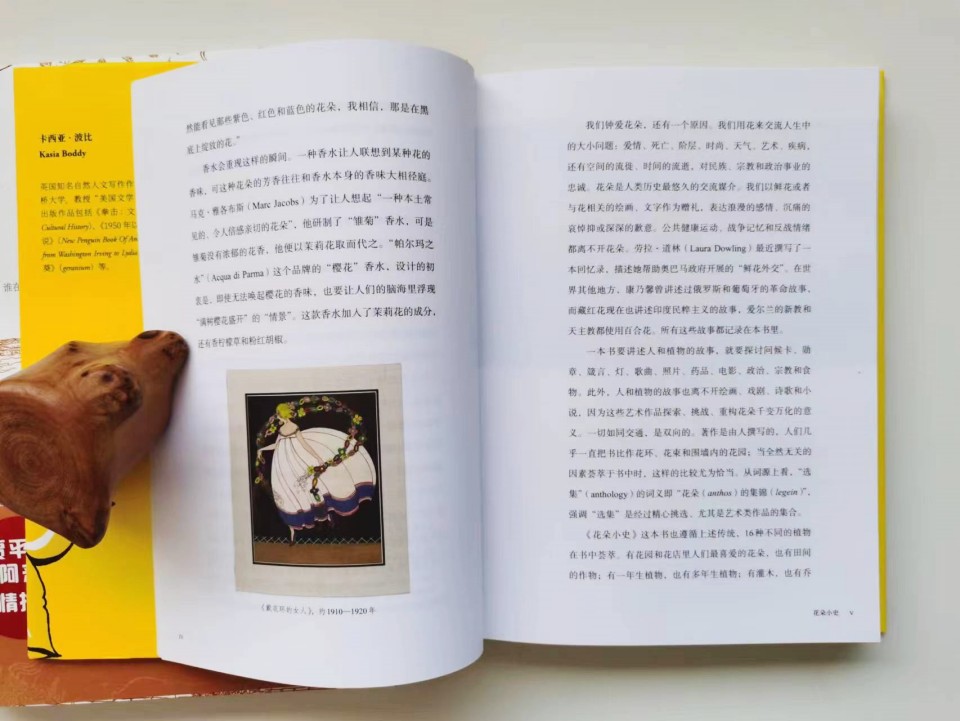 卡西亚·波比
Kasia Boddy
英国知名自然人文写作作
桥大学，教授“美国文学
出版作品包括《拳击：文
Cultural History）、《1950 年以
说》（New Penguin Book Of Am
from Washington Irving to Lydia
葵》（geranium）等。
谁在
情
然能看见那些紫色、红色和蓝色的花朵，我相信，那是在黑
底上绽放的花。”
香水会重现这样的瞬间。一种香水让人联想到某种花的
香味，可这种花朵的芳香往往和香水本身的香味大相径庭。
马克·雅各布斯（Marc Jacobs）为了让人想起“一种本土常
见的、令人倍感亲切的花朵”，他研制了“雏菊”香水，可是
雏菊没有浓郁的花香，他便以茉莉花取而代之。“帕尔玛之
水”（Acqua di Parma）这个品牌的“樱花”香水，设计的初
衷是，即使无法唤起樱花的香味，也要让人们的脑海里浮现
“满树樱花盛开”的“情景”。这款香水加入了茉莉花的成分，
还有香柠檬草和粉红胡椒。
《戴花环的女人》，约 1910—1920 年
我们钟爱花朵，还有一个原因。我们用花来交流人生中
的大小问题：爱情、死亡、阶层、时尚、天气、艺术、疾病，
还有空间的流徙、时间的流逝，对民族、宗教和政治事业的
忠诚。花朵是人类历史最悠久的交流媒介。我们以鲜花或者
与花相关的绘画、文字作为赠礼，表达浪漫的感情、沉痛的
哀悼抑或深深的歉意。公共健康运动、战争记忆和反战情绪
都离不开花朵。劳拉·道林（Laura Dowling）最近撰写了一
本回忆录，描述她帮助奥巴马政府开展的“鲜花外交”。在世
界其他地方，康乃馨曾讲述过俄罗斯和葡萄牙的革命故事，
而藏红花现在也讲述印度民粹主义的故事，爱尔兰的新教和
天主教都使用百合花。所有这些故事都记录在本书里。
一本书要讲述人和植物的故事，就要探讨问候卡、勋
章、箴言、灯、歌曲、照片、药品、电影、政治、宗教和食
物。此外，人和植物的故事也离不开绘画、戏剧、诗歌和小
说，因为这些艺术作品探索、挑战、重构花朵千变万化的意
义。一切如同交通，是双向的。著作是由人撰写的，人们几
乎一直把书比作花环、花束和围墙内的花园；当全然无关的
因素荟萃于书中时，这样的比较尤为恰当。从词源上看，“选
集”（anthology）的词义即“花朵（anthos）的集锦（legein）”，
强调“选集”是经过精心挑选、尤其是艺术类作品的集合。
《花朵小史》这本书也遵循上述传统，16种不同的植物
在书中荟萃。有花园和花店里人们最喜爱的花朵，也有田间
的作物；有一年生植物，也有多年生植物；有灌木，也有乔
花朵小史 V